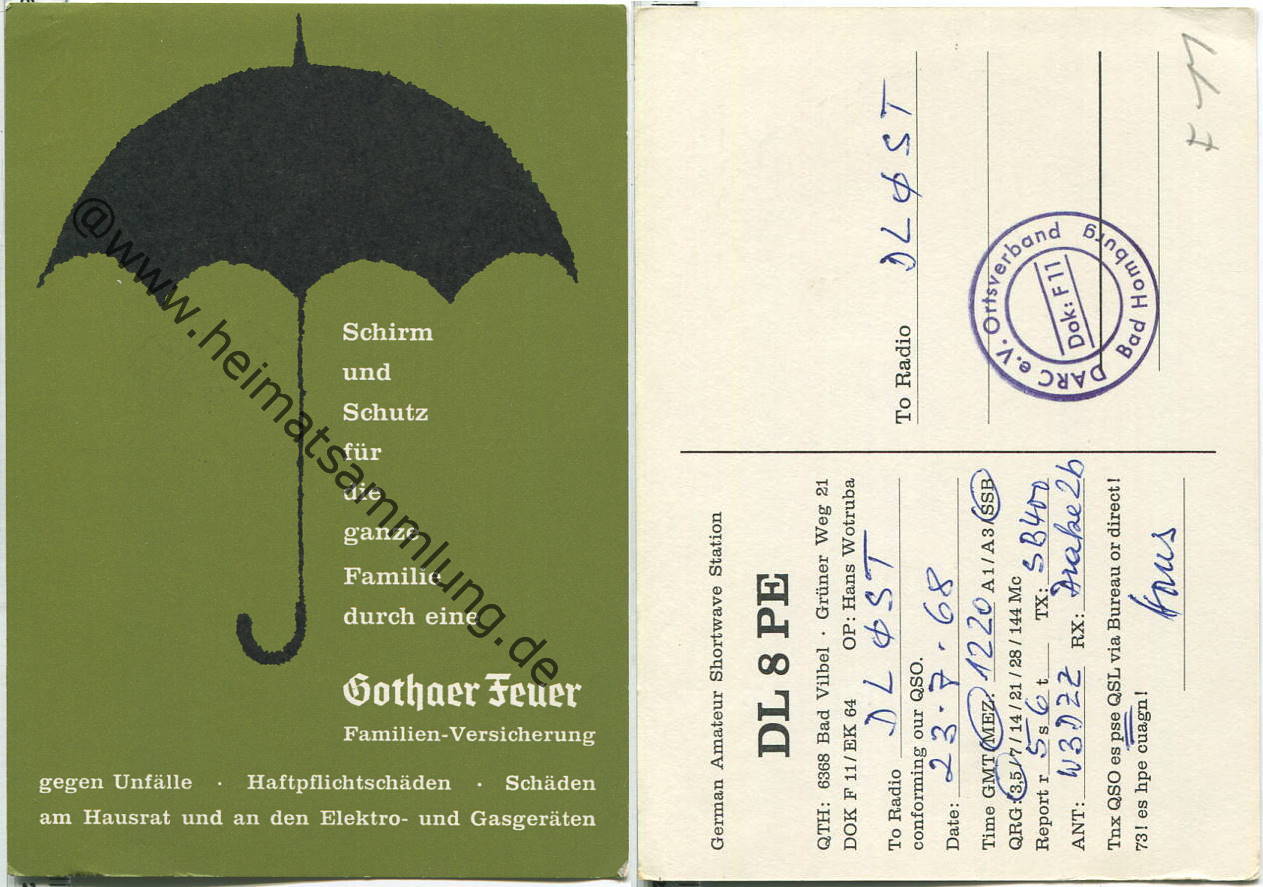 Schirm
und
Schutz
für
die
ganze
Familie
durch eine
Gothaer Feuer
Familien-Versicherung
gegen Unfälle · Haftpflichtschäden · Schäden
am Hausrat und an den Elektro- und Gasgeräten
@www.heimatsammlung.de
German Amateur Shortwave Station
DL 8 PE
QTH: 6368 Bad Vilbel · Grüner Weg 21
DOK F 11/EK 64 OP: Hans Wotruba
To Radio DLØST
conforming our QSO.
Date: 23.7.68
Time GMT/MEZ: 1220 A1/A3/SSB
QRG: 3,5/7/14/21/28/144 Mc
Report r 5 s 6 t TX: SB400
ANT: W3DZZ RX: Drake 2b
Tnx QSO es pse QSL via Bureau or direct!
73! es hpe cuagn!
Hans
To Radio DLØST
DARC e.V. Ortsverband Bad Homburg
Dok: F 11
F 11